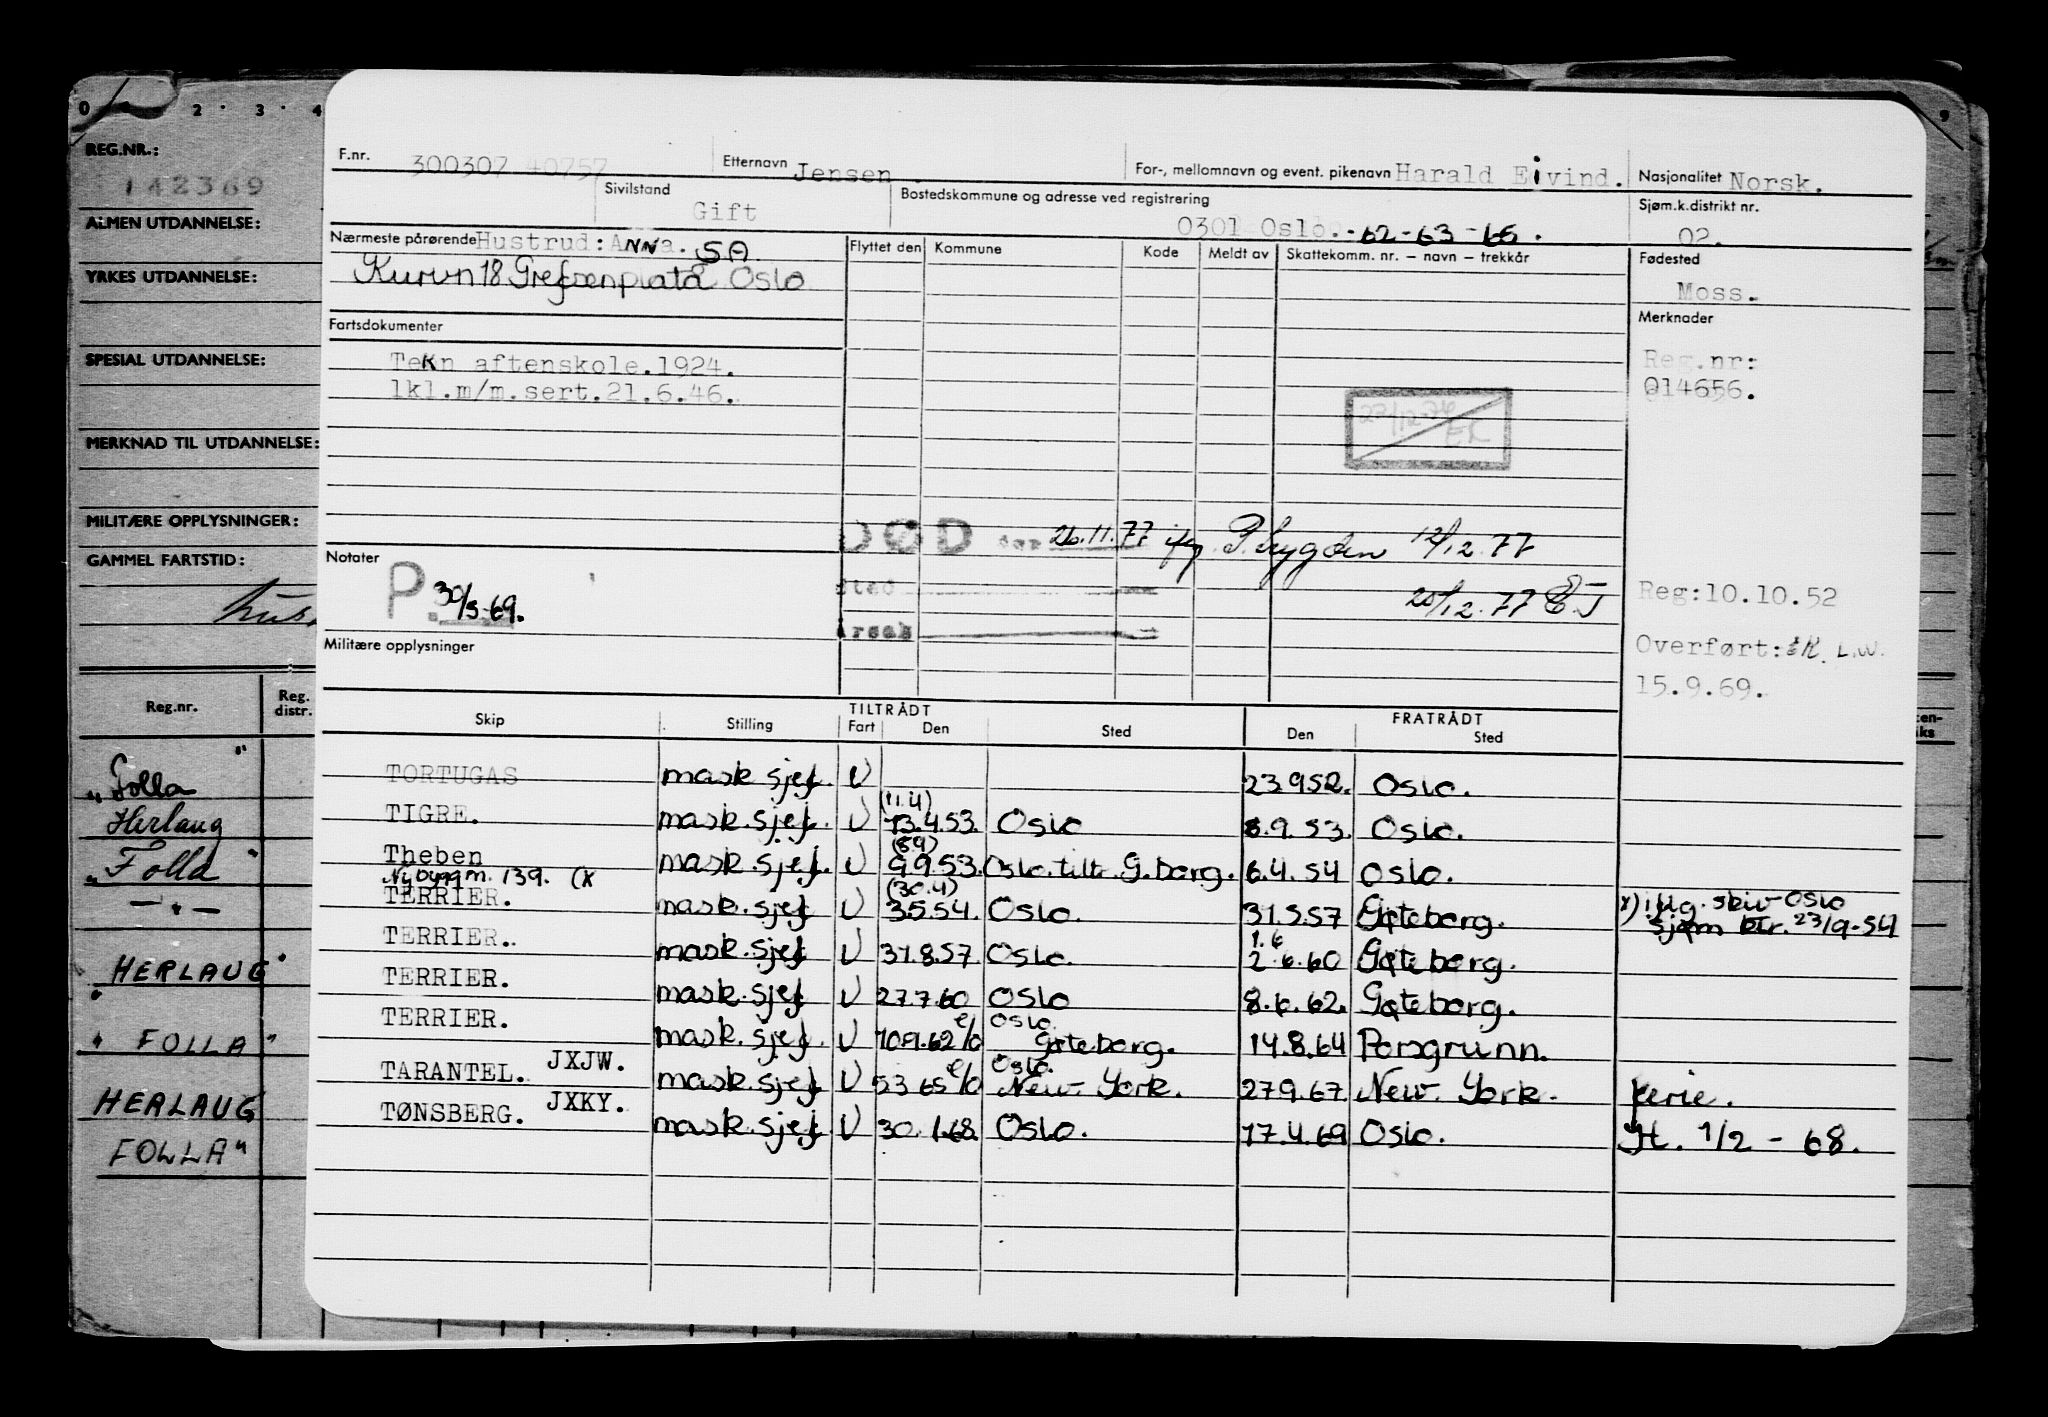 0 2 · 3 · 4 9
REG.NR.:
142369
ALMEN UTDANNELSE:
YRKES UTDANNELSE:
SPESIAL UTDANNELSE:
MERKNAD TIL UTDANNELSE:
MILITÆRE OPPLYSNINGER:
GAMMEL FARTSTID:
Reg.nr. Reg. distr.
"Folla"
Herlaug
"Folla"
— " —
HERLAUG"
" FOLLA"
HERLAUG
FOLLA"
F.nr. 300307 40757 Etternavn Jensen . For-, mellomnavn og event. pikenavn Harald Eivind. Nasjonalitet Norsk.
Sivilstand Gift Bostedskommune og adresse ved registrering 0301 Oslo. -62-63-65. Sjøm.k.distrikt nr. 02.
Nærmeste pårørende Hustrud: Anna. SA Flyttet den Kommune Kode Meldt av Skattekomm. nr. – navn – trekkår Fødested
Kurvn 18 Grefsenplatå Oslo Moss.
Fartsdokumenter Merknader
Tekn aftenskole.1924. Reg.nr:
1kl.m/m.sert.21.6.46. 014656.
27/12-74
EK
DØD den 26.11.77 iføg P. trygden 12/12.77
Notater
P. 30/5-69.
Sted 20/12.77 EJ Reg:10.10.52
Årsak
Militære opplysninger Overført: EK. L.W.
15.9.69.
Skip Stilling TILTRÅDT Fart Den Sted FRATRÅDT Den Sted
TORTUGAS mask.sjef. U 23.9.52. Oslo.
(11.4)
TIGRE. mask.sjef. U 13.4.53. Oslo 8.9.53. Oslo.
(8.9)
Theben mask.sjef. U 9.9.53. Oslo. tiltr. G.borg. 6.4.54 Oslo.
Nybygg m. 139. (x (30.4)
TERRIER. mask.sjef U 3.5.54. Oslo. 31.5.57 Gøteborg. x) iflg. skiv Oslo
sjøm ktr. 23/9-54
1.6
TERRIER. mask.sjef U 31.8.57. Oslo. 2.6.60 Gøteborg.
TERRIER. mask.sjef U 27.7.60 Oslo 8.6.62. Gøteborg.
TERRIER. mask.sjef. U 10.9.62 e/o Oslo. Gøteborg. 14.8.64 Porsgrunn.
TARANTEL. JXJW. mask.sjef U 5.3.65 e/o Oslo. New York. 27.9.67 New York. ferie.
TØNSBERG. JXKY. mask.sjef U 30.1.68. Oslo. 17.4.69 Oslo. H. 1/2 - 68.